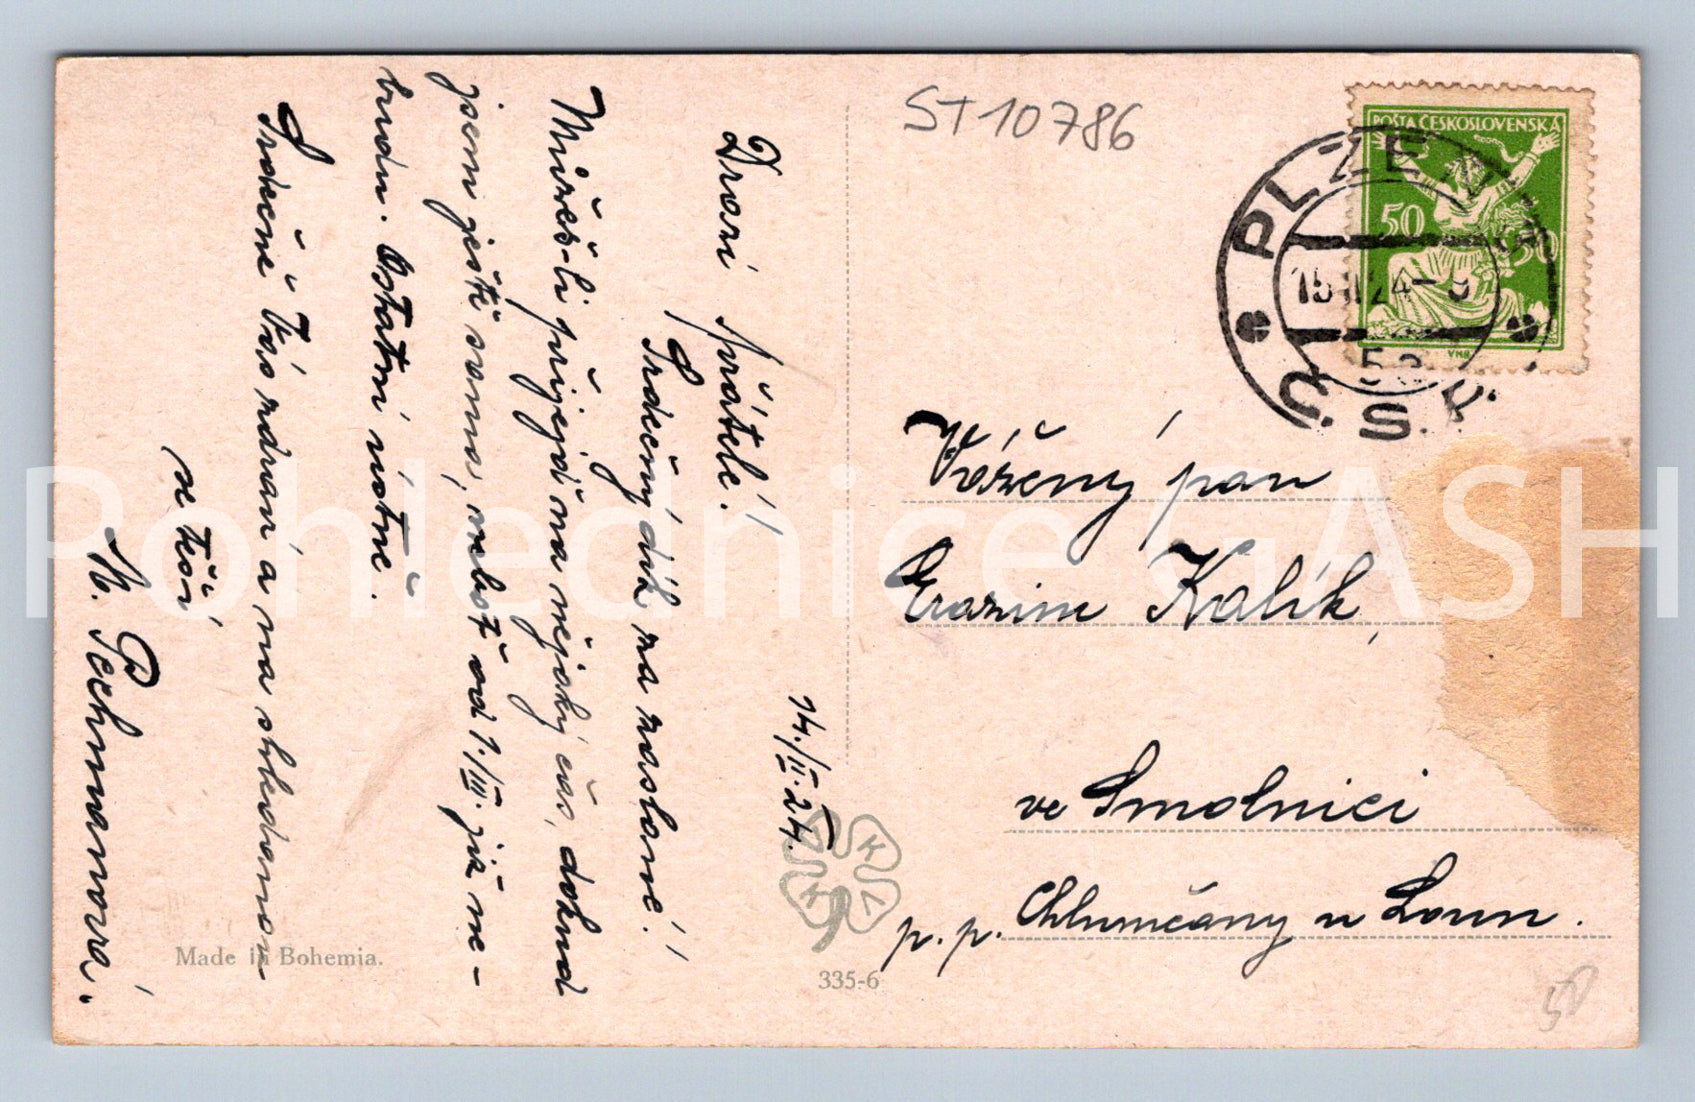 14./II.24.
Drazí přátelé!
Srdečný dík za zaslané!
Můžeš-li přijeď na nějaký čas, dokud
jsem ještě svoma, neboť od 1./III. již ne-
budu. Ostatní ústně.
Srdečně Vás zdraví a na shledanou
se těší
M. Pechmanová.
Made in Bohemia.
335-6
KVKL
ST10786
POŠTA ČESKOSLOVENSKÁ
50 50
VHB
PLZEŇ
15 II 24 - 9
5a
Č.S.R.
Vážený pan
Erazim Kalík,
ve Smolnici
p.p. Chlumčany u Loun.
50
Pohlednice GASH